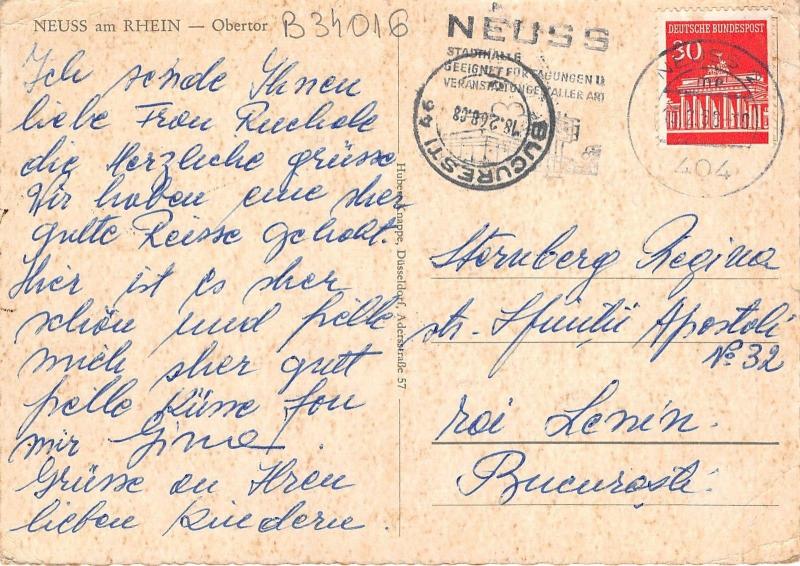 NEUSS am RHEIN — Obertor
B34016
Ich sende Ihnen
liebe Frau
die Herzliche grüsse
Wir haben eine sher
gutte Reisse gehabt.
Hier ist es sher
schön und fülle
mich sher gutt
felle Küsse fon
mir Gina.
Grüsse an Ihren
lieben Kindern.
Hubert Knappe, Düsseldorf, Adersstraße 57
NEUSS
STADTHALLE
GEEIGNET FÜR TAGUNGEN U
VERANSTALTUNGEN ALLER ART
BUCUREŞTI
DEUTSCHE BUNDESPOST
30
404
Sternberg Regina
str. Sfinții Apostoli
No 32
roi Lenin.
București.